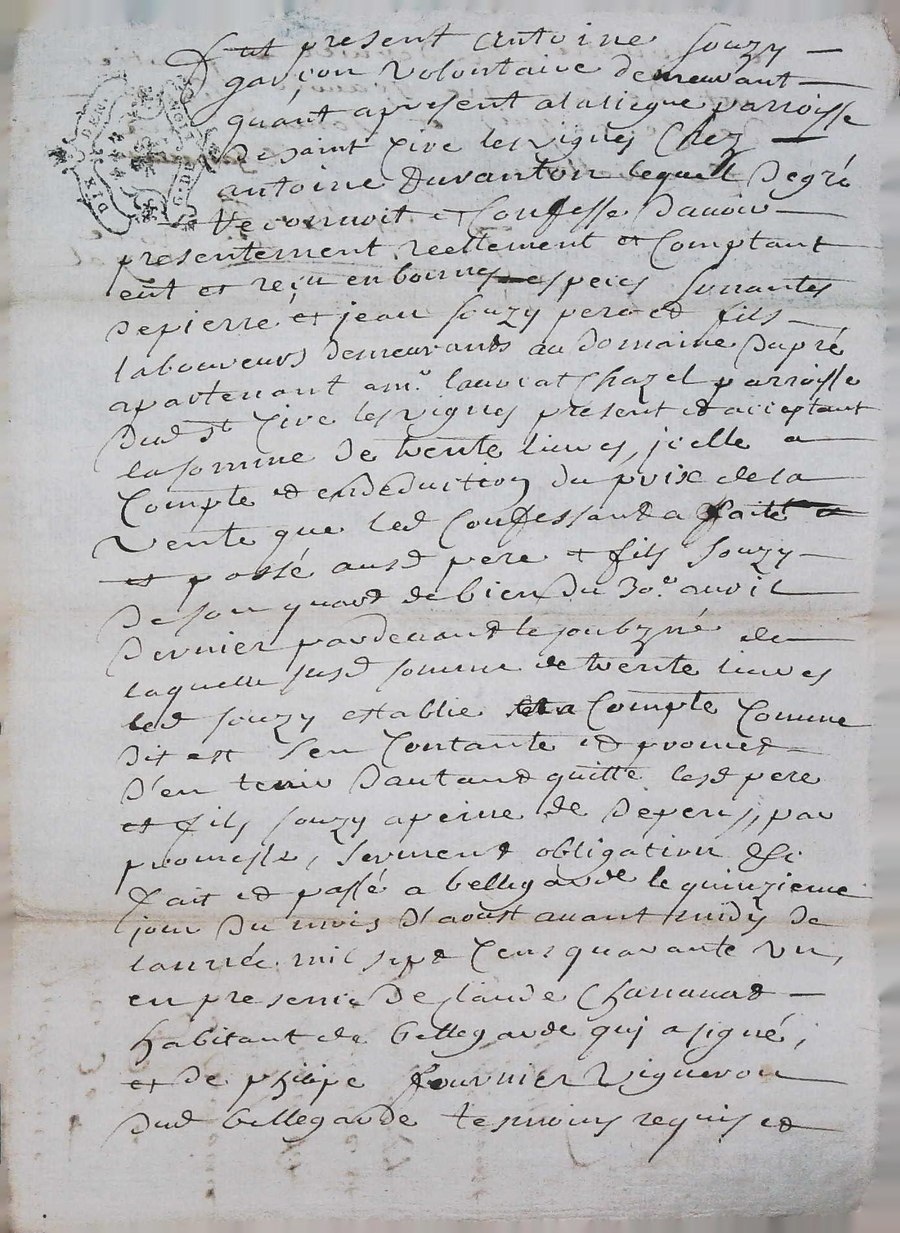 DIX DEN.
G. DE
Fut present Antoine Souzy
garçon volontaire demeurant
quant apresent alaliegue parroisse
de saint Cire les vignes Chez
antoine Duranton lequell Degré
Reconnoit et Confesse Davoir
presentement reellement et Comptant
eut et reçu en bonnes especes sonnantes
De pierre et jean Souzy pere et fils
laboureurs demeurants au domaine Dupré
apartenant a mr. laurent Chazel parroisse
Dud st Cire les vignes present et acceptant
la somme de trente livres, jcelle a
Compte et en deduction du prix de la
vente que led Confessant a faite
et passé ausd pere et fils Souzy
De son quard de bien du 30e. avril
Dernier pardevant le soubzné de
laquelle susd somme de trente livres
led Souzy establie a Compte Comme
dit est s'en Contante et promet
D'en tenir Dautant quitte lesd pere
et fils Souzy apeine de Depens, par
promesse, serment obligation &c
Fait et passé a bellegarde le quinzieme
jour Du mois D'aoust avant midy de
lannée mil sept Cens quarante un,
en presence De Claude Chananat
habitant de bellegarde quj a signé,
et de phipe fournier vigneron
dud bellegarde tesmoins requis et